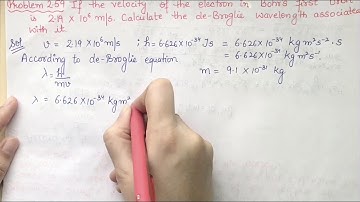 Problem 2.59 If the velocity of the electron in Bohr's first
is 2.19 × 10⁶ m/s. Calculate the de-Broglie wavelength associated
with it.
Sol v = 2.19 × 10⁶ m/s ; h = 6.626 × 10⁻³⁴ Js = 6.626 × 10⁻³⁴ kg m² s⁻² . s
= 6.626 × 10⁻³⁴ kg m² s⁻¹
According to de-Broglie equation
λ = h/mv m = 9.1 × 10⁻³¹ kg
λ = 6.626 × 10⁻³⁴ kg m²